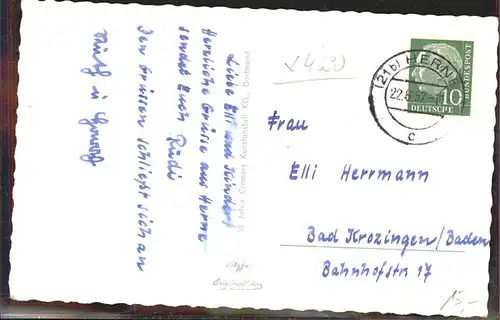 Liebe Elli und Kinder!
Herzliche Grüsse aus Herne
sendet Euch Rudi
Den Grüssen schließt sich an
Cramers Kunstanstalt KG., Dortmund
x420
(21b) HERNE
22.6.57
c
DEUTSCHE
BUNDESPOST
10
Frau
Elli Herrmann
Bad Krozingen/Baden
Bahnhofstr. 17
15,-